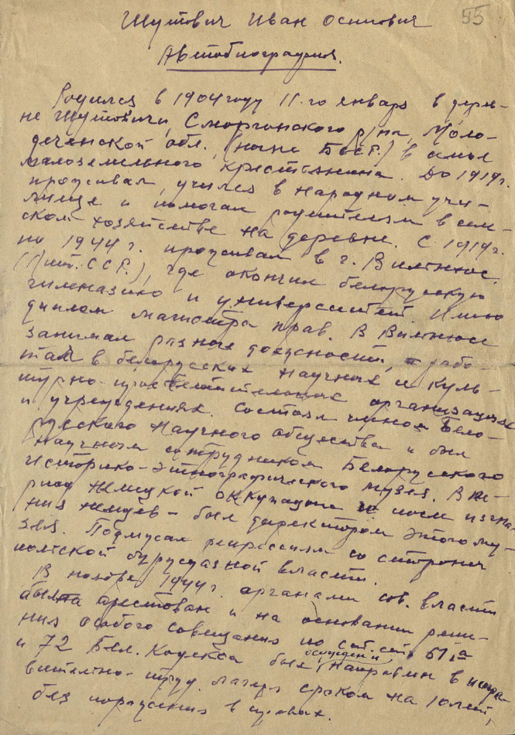 Шутович Иван Осипович
55
Автобиография.
Родился в 1904 году 11-го января в дерев-
не Шутовичи, Сморгонского р/на, Моло-
деченской обл. (ныне БССР.) в семье
малоземельного крестьянина. До 1919 г.
проживал, учился в Народном учи-
лище и помогал родителям в сель-
ском хозяйстве на деревне. С 1919 г.
по 1944 г. проживал в г. Вильнюс.
(Лит. ССР.), где окончил белорусскую
гимназию и университет. Имею
диплом магистра прав. В Вильнюсе
занимал разные должности, рабо-
тал в белорусских научных и куль-
турно-просветительных организациях
и учреждениях. Состоял членом Бело-
русского Научного общества и был
научным сотрудником Белорусского
Историко-Этнографического музея. В пе-
риод немецкой оккупации и после изгна-
ния немцев - был директором этого му-
зея. Подмусал репрессиям со стороны
польской буржуазной власти.
В ноябре 1944 г. органами сов. власти
был арестован и на основании реше-
ния Особого совещания по ст. 61 1а
и 72 Бел. Кодекса был осужден и направлен в испра-
вительно-труд. лагерь сроком на 10 лет,
без поражения в правах.